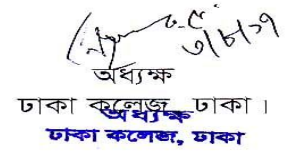 ৩/৮/১৭
অধ্যক্ষ
ঢাকা কলেজ, ঢাকা।
অধ্যক্ষ
ঢাকা কলেজ, ঢাকা